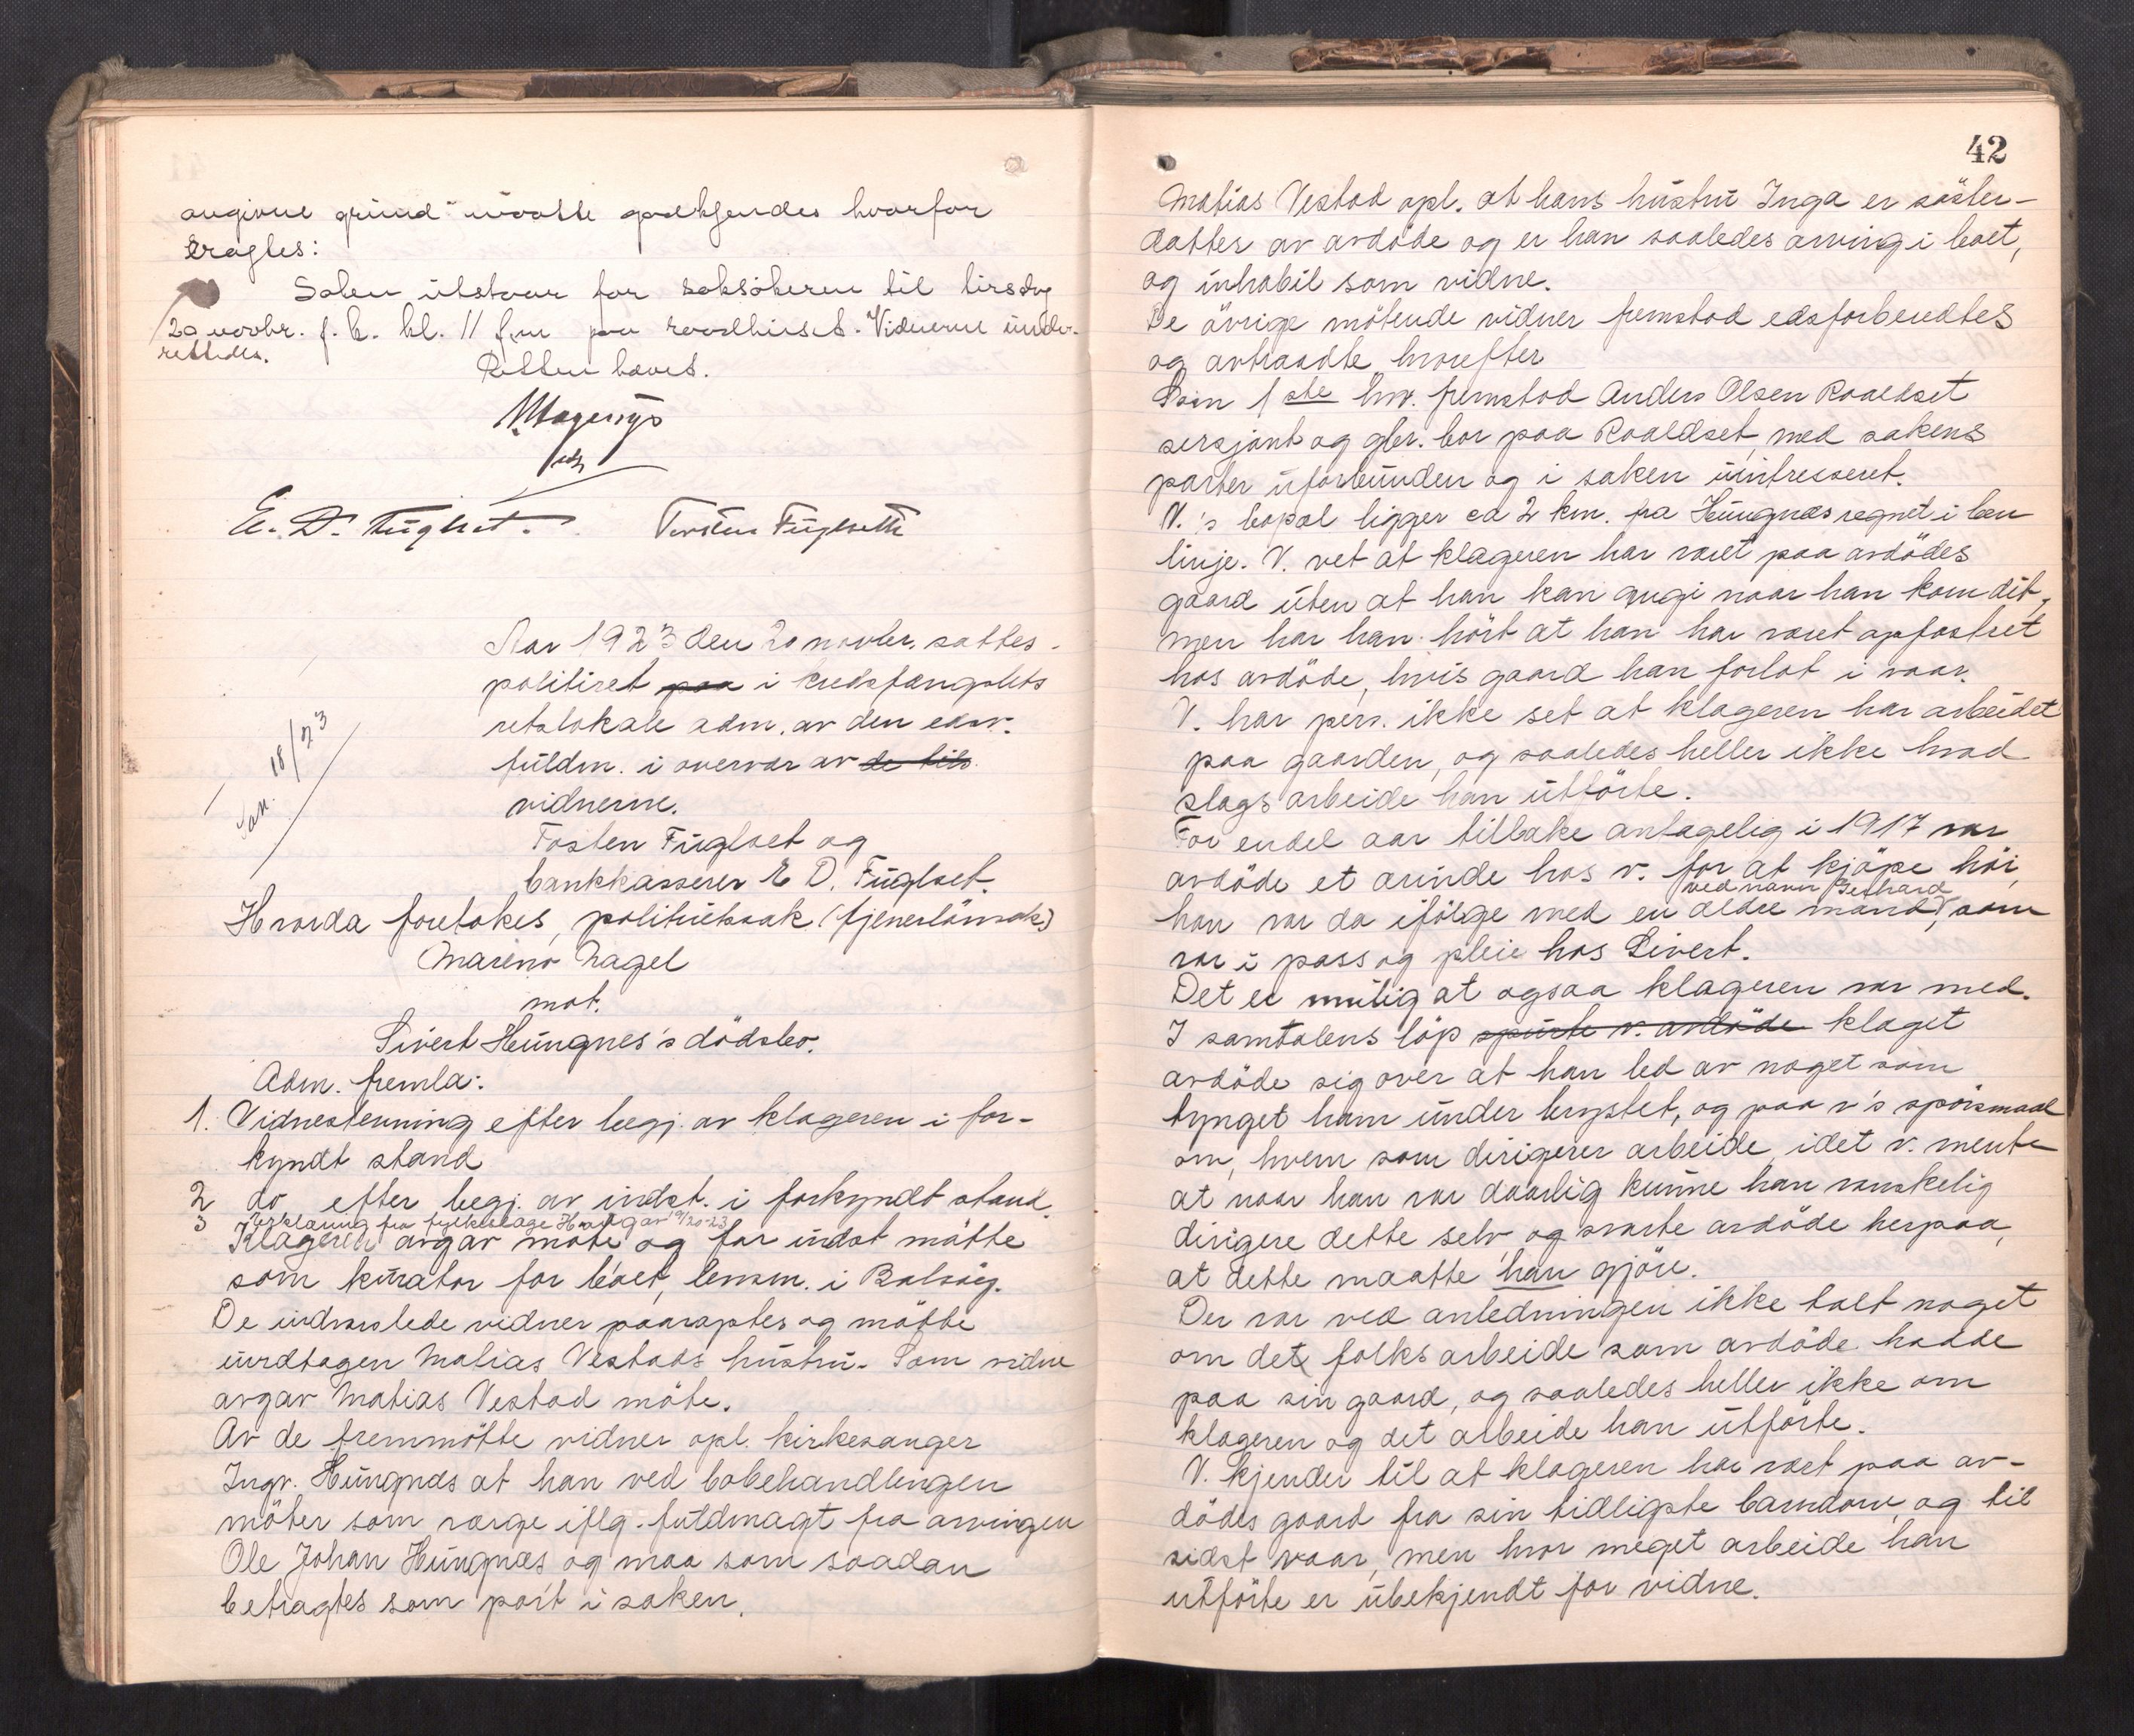 angivne grund maatte godkjendes hvorfor
eragtes:
Saken utstaar for saksökeren til tirsdag
20 novbr. f. k. kl. 11 fm paa raadhuset. Vidnerne under-
rettedes.
Retten hævet.
E. D. Fuglset. Torsten Fuglseth
Aar 1923 den 20 novbr. sattes
politiret paa i kredsfængslets
retslokale adm. av den edsv.
fuldm. i overvær av de tilk.
vidnerne.
18/23
Tosten Fuglset og
bankkasserer E D. Fuglset.
Hvorda foretokes, politiretssak (tjenerlönssak)
Mareno Nagel
mot.
Sivert Hungnes's dödsbo.
Adm. fremla:
1. Vidnestevning efter begj. av klageren i for-
kyndt stand
2 do efter begj. av indst. i forkyndt stand.
3 Erklæring fra fylkeslæge
Klageren avgav möte og for indst mötte
som kurator for boet, lensm. i Bolsöy.
De indvarslede vidner paaraptes og mötte
undtagen Matias Vestads hustru. Som vidne
avgav Matias Vestad möte.
Av de fremmötte vidner opl. kirkesanger
Ingv. Hungnæs at han ved bobehandlingen
möter som værge iflg. fuldmagt fra arvingen
Ole Johan Hungnæs og maa som saadan
betragtes som part i saken.
42
Matias Vestad opl. at hans hustru Inga er söster-
datter av avdöde og er han saaledes arving i boet,
og inhabil som vidne.
De övrige mötende vidner fremstod edsforberedtes
og avtraadte hvorefter
Som 1ste hov. fremstod Anders Olsen Roaldset
sersjant og gbr. bor paa Roaldset, med sakens
parter uforbunden og i saken uintresseret.
V.'s bopæl ligger ca 2 km. fra Hungnæs regnet i ben
linje. V. vet at klageren har været paa avdödes
gaard uten at han kan angi naar han kom dit,
men har han hört at han har været opfostret
hos avdöde, hvis gaard han forlot i vaar.
V. har pers. ikke set at klageren har arbeidet
paa gaarden, og saaledes heller ikke hvad
slags arbeide han utförte.
For endel aar tilbake antagelig i 1917 var
avdöde et ærinde hos v. for at kjöpe höi,
han var da ifölge med en ældre mand ved navn Gerhard, som
var i pass og pleie hos Sivert.
Det er mulig at ogsaa klageren var med.
I samtalens löp spurte v. avdöde klaget
avdöde sig over at han led av noget som
tynget ham under brystet, og paa v's spörsmaal
om, hvem som dirigerer arbeide, idet v. mente
at naar han var daarlig kunne han vanskelig
dirigere dette selv, og svarte avdöde herpaa,
at dette maatte han gjöre.
Der var ved anledningen ikke talt noget
om det folks arbeide som avdöde hadde
paa sin gaard, og saaledes heller ikke om
klageren og det arbeide han utförte.
V. kjender til at klageren har været paa av-
dödes gaard fra sin tidligste barndom, og til
sidst vaar, men hvor meget arbeide han
utförte er ubekjendt for vidne.